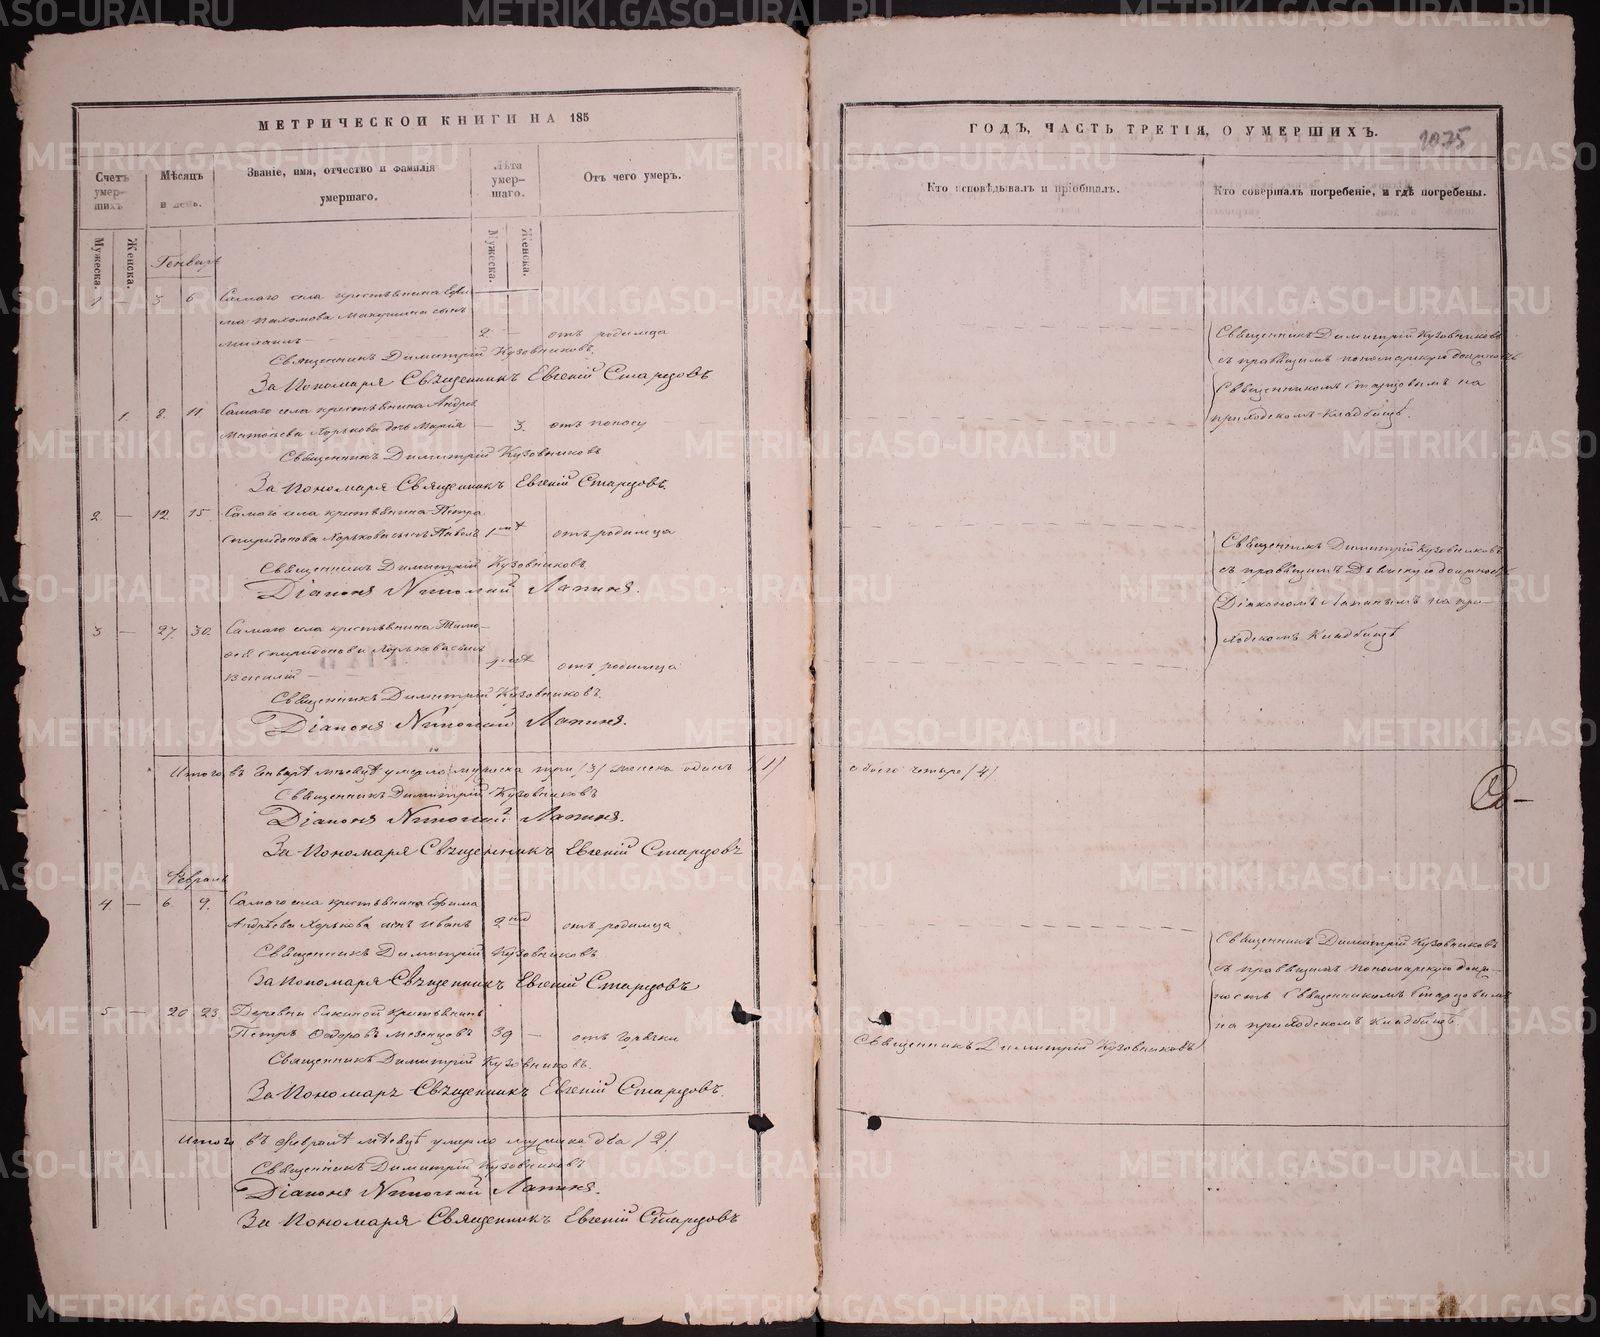 МЕТРИЧЕСКОЙ КНИГИ НА 185
Счетъ умер-шихъ
Мѣсяцъ и день.
Званіе, имя, отчество и фамилія умершаго.
Лѣта умер-шаго.
Отъ чего умеръ.
Мужеска.
Женска.
Мужеска.
Женска.
Генварь
1 — 3 6 Самаго села крестьянина
Пахомова сынъ
Михаилъ 2 — отъ родимца
Священникъ Димитрій Кузовниковъ.
За Пономаря Священникъ Евгеній Старцовъ
1. 8. 11. Самаго села крестьянина Андрея
Хорькова дочь Марія — 3. отъ поносу
Священникъ Димитрій Кузовниковъ
За Пономаря Священникъ Евгеній Старцовъ.
2 — 12. 15. Самаго села крестьянина Петра
Спиридонова Хорькова сынъ Павелъ отъ родимца
Священникъ Димитрій Кузовниковъ
Діаконъ Николай Лапинъ.
3 — 27. 30. Самаго села крестьянина Тимо-
фея Спиридонова Хорькова сынъ
Василій — отъ родимца
Священникъ Димитрій Кузовниковъ.
Діаконъ Николай Лапинъ.
Итого въ Генварѣ мѣсяцѣ умерло мужеска три /3/ женска одинъ /1/
Священникъ Димитрій Кузовниковъ
Діаконъ Николай Лапинъ.
За Пономаря Священникъ Евгеній Старцовъ
Февраль
4 — 6 9. Самаго села крестьянина Ефима
Андрѣева Хорькова сынъ Иванъ отъ родимца
Священникъ Димитрій Кузовниковъ
За Пономаря Священникъ Евгеній Старцовъ
5 — 20 23. Деревни крестьянинъ
Петръ Ѳедоровъ Мезенцовъ 39 — отъ горячки
Священникъ Димитрій Кузовниковъ.
За Пономаря Священникъ Евгеній Старцовъ.
Итого въ Февралѣ мѣсяцѣ умерло мужеска два /2/
Священникъ Димитрій Кузовниковъ
Діаконъ Николай Лапинъ.
За Пономаря Священникъ Евгеній Старцовъ
ГОДЪ, ЧАСТЬ ТРЕТІЯ, О УМЕРШИХЪ.
1075
Кто исповѣдывалъ и пріобщалъ.
Кто совершалъ погребеніе, и гдѣ погребены.
Священникъ Димитрій Кузовниковъ
съ правящимъ пономарскую должность
Священникомъ Старцовымъ на
приходскомъ кладбищѣ.
Священникъ Димитрій Кузовниковъ
съ правящимъ должность
Діакономъ Лапинымъ на при-
ходскомъ кладбищѣ
обоего четыре /4/
Священникъ Димитрій Кузовниковъ
съ правящимъ пономарскую долж-
ность Священникомъ Старцовымъ
на приходскомъ кладбищѣ
Священникъ Димитрій Кузовниковъ
METRIKI.GASO-URAL.RU